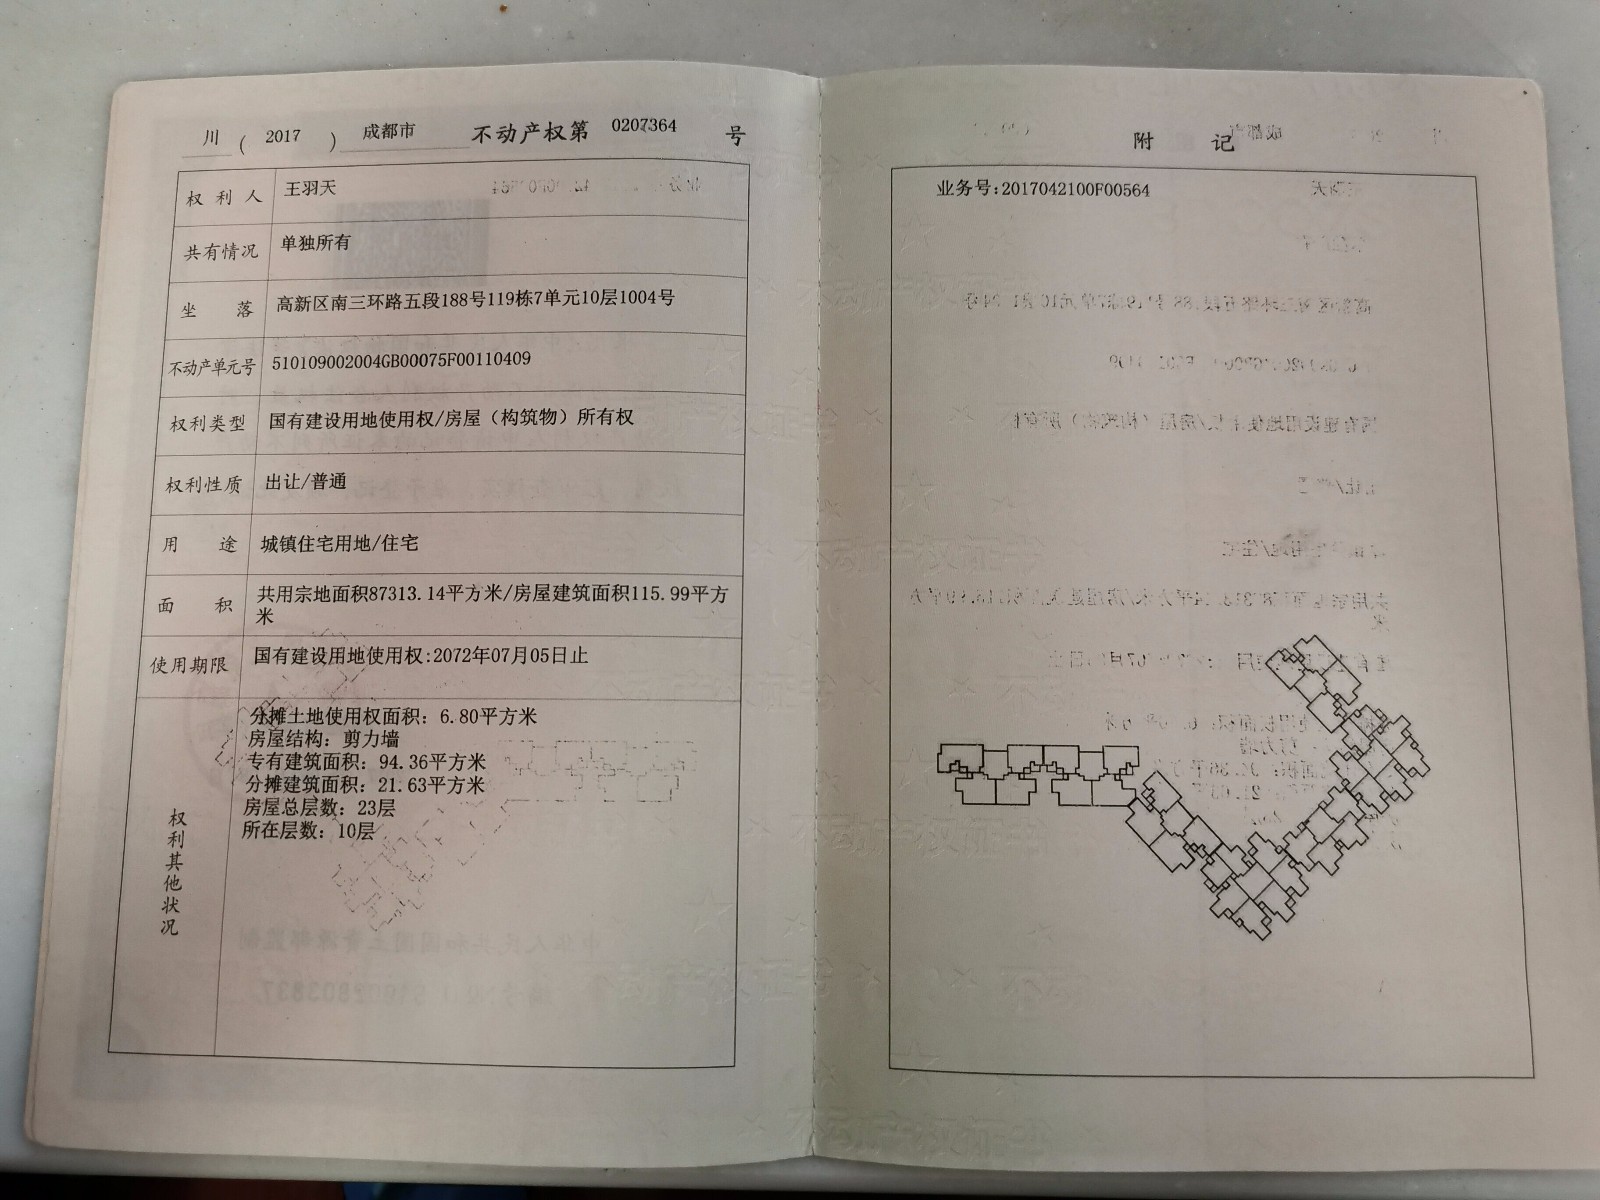 川 ( 2017 ) 成都市 不动产权第 0207364 号
权利人 王羽天
共有情况 单独所有
坐落 高新区南三环路五段188号119栋7单元10层1004号
不动产单元号 510109002004GB00075F00110409
权利类型 国有建设用地使用权/房屋（构筑物）所有权
权利性质 出让/普通
用途 城镇住宅用地/住宅
面积 共用宗地面积87313.14平方米/房屋建筑面积115.99平方
米
使用期限 国有建设用地使用权:2072年07月05日止
权利其他状况
分摊土地使用权面积：6.80平方米
房屋结构：剪力墙
专有建筑面积：94.36平方米
分摊建筑面积：21.63平方米
房屋总层数：23层
所在层数：10层
附记
业务号:2017042100F00564